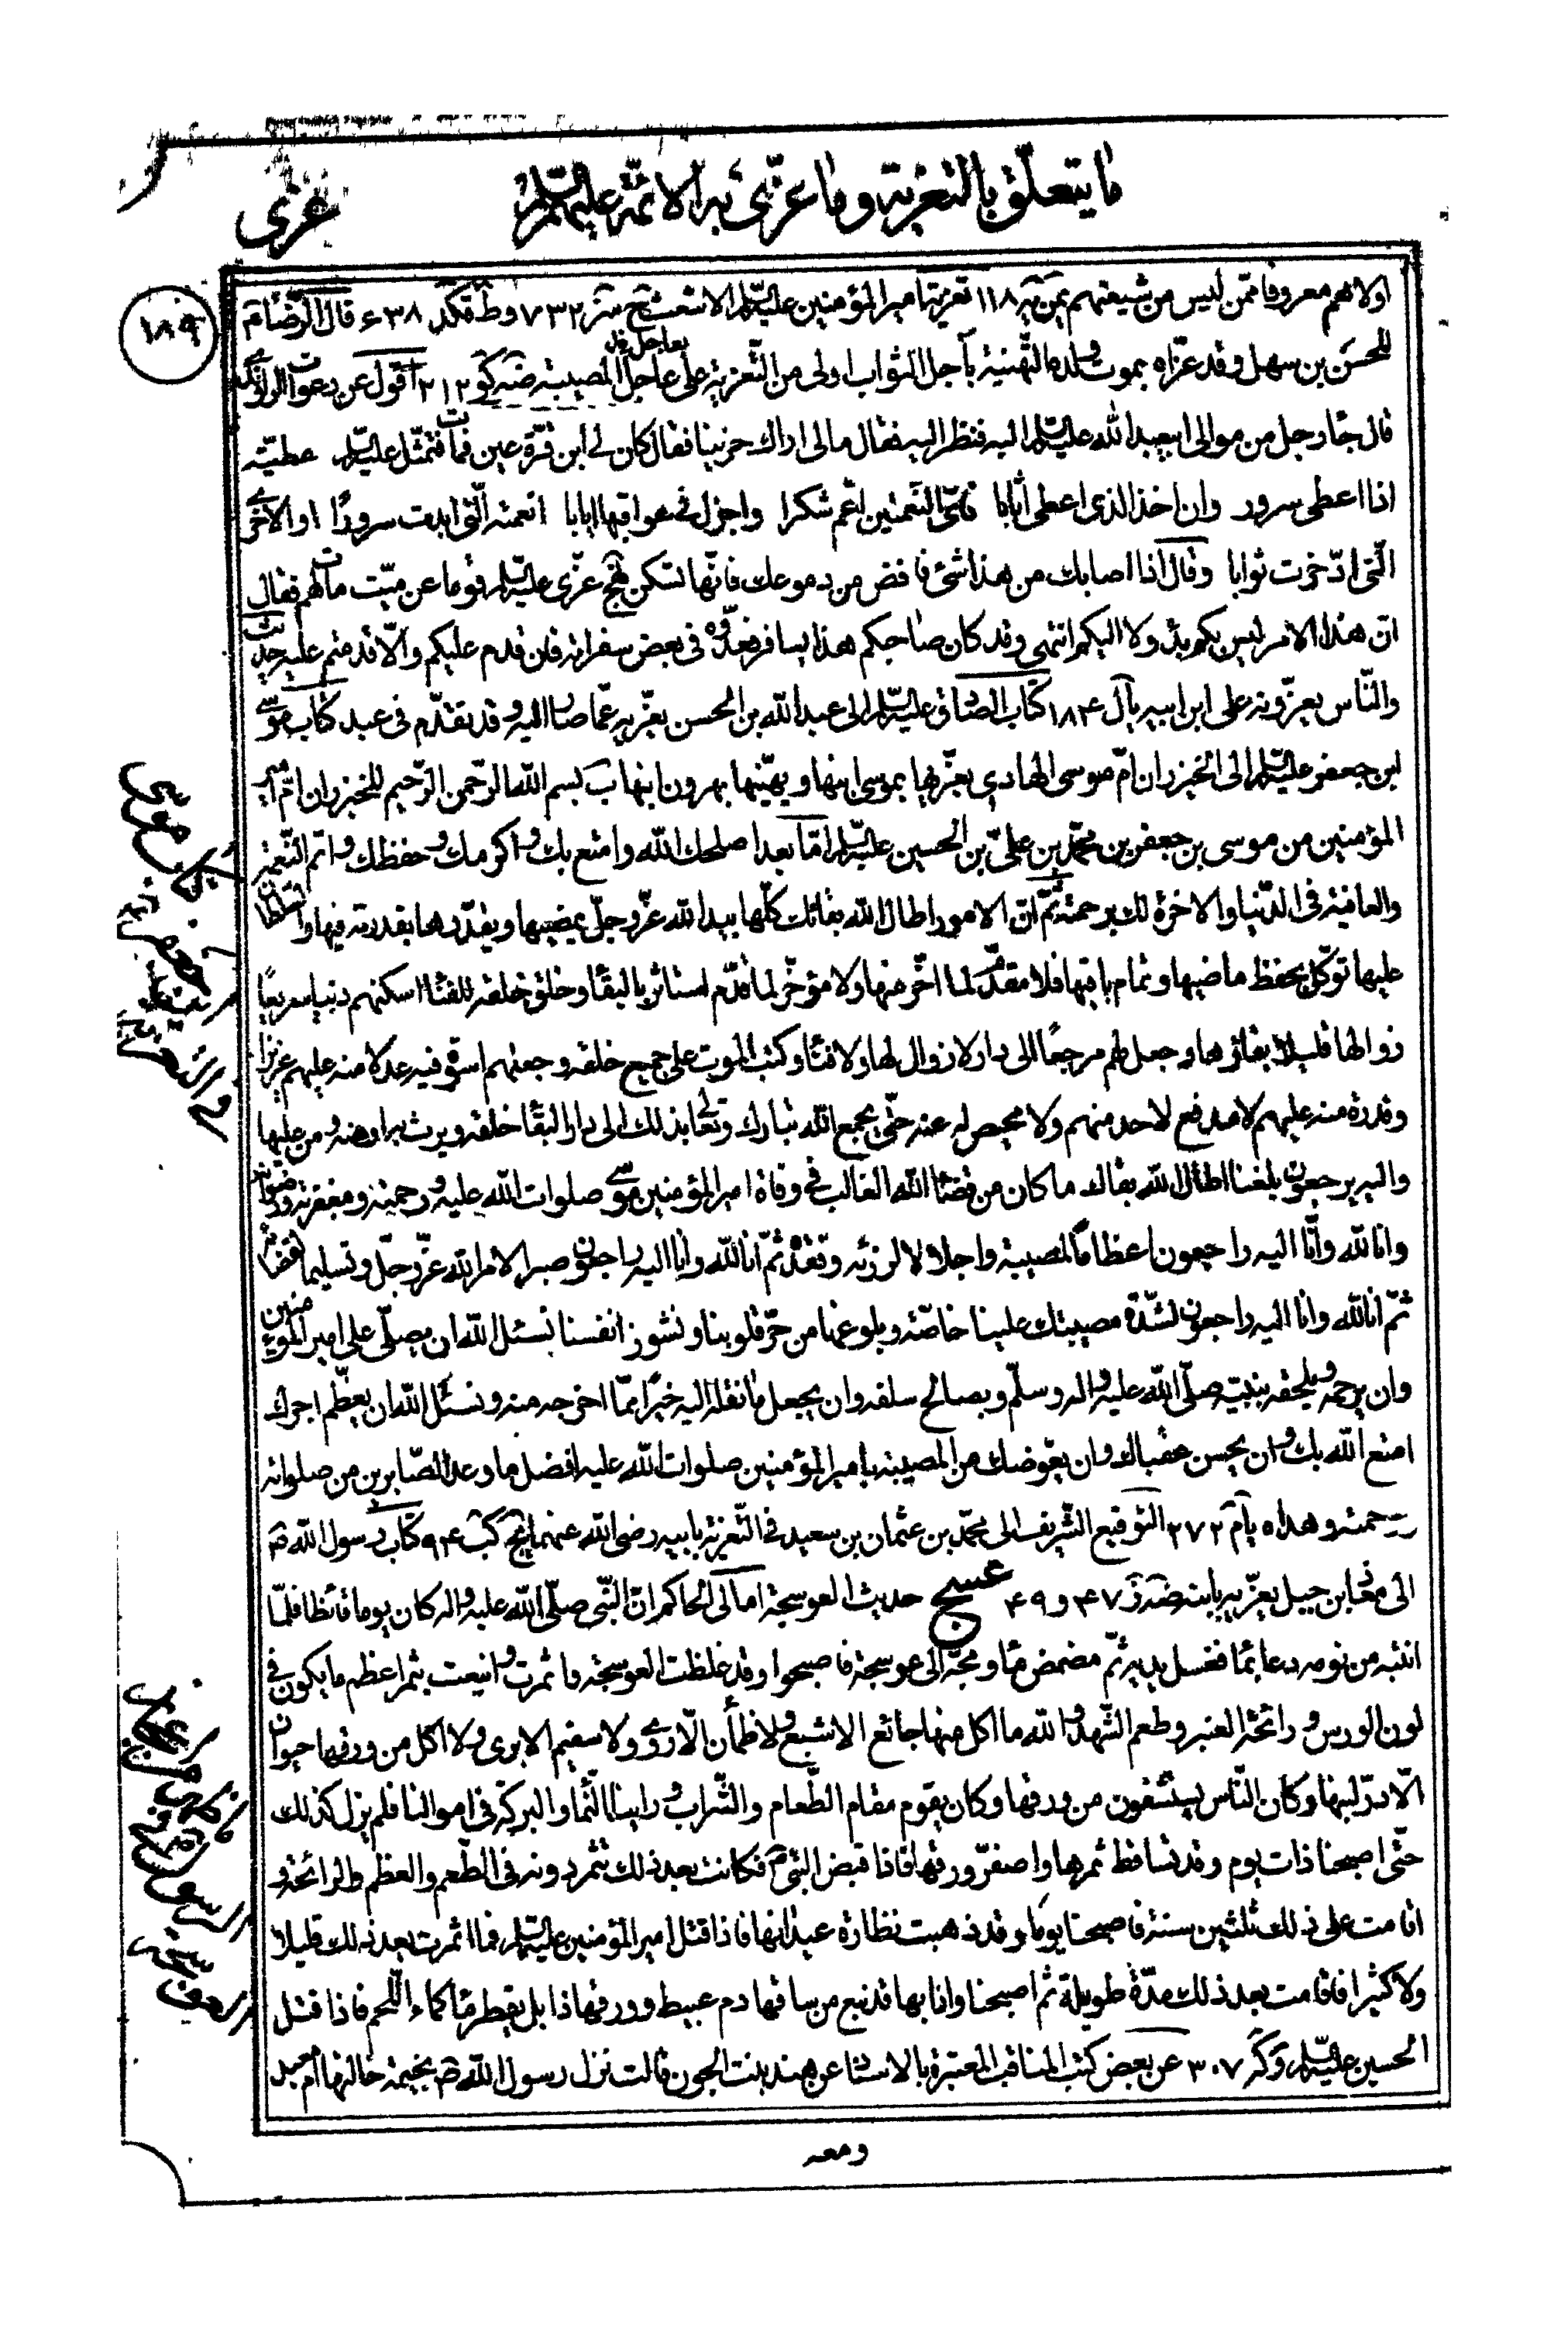 ما يتعلّق بالتعزية وما عزّي به الائمّة عليهم السّلم
عزى
١٨٩
اولاهم معروفا ممّن ليس من شيعتهم يمن يه ١١٨ تعزية امير المؤمنين عليه السّلم الاشعث ح سز ٧٣٢ وط قكد ٣٨ء قال الرّضا م
للحسن بن سهل وقد عزّاه بموت ولده التّهنية بآجل الثواب اولى من التّعزية على عاجل المصيبة ضه كو ٢١٢ اقول عن دعوات الراوندي
بعاجل خل
قال جاء رجل من موالى ابيعبد الله عليه السّلم اليه فنظر اليه فقال مالى اراك حزينا فقال كان لى ابن قرّة عين فمات فتمثّل عليه السّلم عطيّته
اذا اعطى سرور وان اخذ الذى اعطى اثابا فاىّ النّعمتين اعّم شكرا واجزل فى عواقبها ايابا انعمته الّتى ابدت سرورًا او الاخرى
الّتى ادّخرت ثوابا وقال اذا اصابك من هذا شئ فافض من دموعك فانّها تسكن نهج عزّى عليه السّلم قوما عن ميّت مات لهم فقال
انّ هذا الامر ليس بكم بدء ولا اليكم انتهى وقد كان صاحبكم هذا يسافر فعدّوه فى بعض سفراته فان قدم عليكم والّا قدمتم عليه جديث
والنّاس يعزّونه على ابن ابيه يآل ١٨٤ كتاب الصّادق عليه السّلم الى عبد الله بن الحسن يعزّيه عمّا صار اليه وقد تقدّم فى عبد كتاب موسى
ابن جعفر عليه السّلم الى الخيزران امّ موسى الهادى يعزّيها بموسى ابنها ويهنّيها بهرون ابنها ب بسم الله الرّحمن الرّحيم للخيزران امّ امير
المؤمنين من موسى بن جعفر بن محمّد بن علىّ بن الحسين عليه السّلم امّا بعد اصلحك الله وامتع بك واكرمك وحفظك واتم النّعمة
والعافية فى الدّنيا والاخرة لك برحمته ثمّ انّ الامور اطال الله بقائك كلّها بيد الله عزّ وجلّ يمضيها ويقدّرها بقدرته فيها والسّلطان
عليها توكّل بحفظ ماضيها وتمام باقيها فلا مقدّم لما اخّر منها ولا مؤخّر لما قدّم استاثر بالبقاء وخلق خلقه للفناء اسكنهم دنيا سريعا
زوالها قليلا بقاؤها وجعل لهم مرجعًا الى دار لا زوال لها ولا فناء وكتب الموت على جميع خلقه وجعلهم اسوة فيه عدلا منه عليهم عزيزا
وقدرة منه عليهم لا مدفع لاحد منهم ولا محيص له عنه حتّى يجمع الله تبارك وتعالى بذلك الى دار البقاء خلقه ويرث به ارضه ومن عليها
واليه يرجعون بلغنا اطال الله بقاك ما كان من قضاء الله الغالب فى وفاة امير المؤمنين موسى صلوات الله عليه ورحمته ومغفرته ورضوانه
وانا لله وانّا اليه راجعون اعظاما لمصيبة واجلالا لرزئه وفقده ثمّ انا لله وانا اليه راجعون صبرا لامر الله عزّ وجلّ وتسليما لقضائه
ثمّ انا لله وانا اليه راجعون لشدّة مصيبتك علينا خاصّة وبلوغها من حرّ قلوبنا ونشوز انفسنا نسئل الله ان يصلّى على امير المؤمنين
وان يرحمه ويلحقه بنبيّه صلّى الله عليه واله وسلّم وبصالح سلفه وان يجعل ما نقله اليه خيرًا ممّا اخرجه منه ونسئل الله ان يعظّم اجرك
امتع الله بك وان يحسن عقباك وان يعوّضك من المصيبة بامير المؤمنين صلوات الله عليه افضل ما وعد الصّابرين من صلواته
ورحمته وهداه يآم ٢٧٢ التوقيع الشّريف الى محمّد بن عثمان بن سعيد فى التّعزية بابيه رضى الله عنهما يج كب ٩٤ كتاب رسول الله ص
الى معاذ بن جبل يعزّيه بابنه ضه ز ٤٧ و ٤٩ عسج حديث العوسجة امالى الحاكم انّ النّبى صلّى الله عليه واله كان يوما قائظا فلمّا
انتبه من نومه دعا بماء فغسل يديه ثمّ مضمض ماء ومجّه الى عوسجة فاصبحوا وقد غلظت العوسجة واثمرت وانيعت بثمر اعظم ما يكون فى
لون الورس ورائحة العنبر وطعم الشّهد والله ما اكل منها جائع الا شبع ولا ظمأن الّا روى ولا سقيم الا برى ولا اكل من ورقها حيوان
الّا درّ لبنها وكان النّاس يستشفون من ورقها وكان يقوم مقام الطّعام والشّراب وراينا النّماء والبركة فى اموالنا فلم يزل كذلك
حتّى اصبحنا ذات يوم وقد تساقط ثمرها واصفرّ ورقها فاذا قبض النبى ص فكانت بعد ذلك تثمر دونه فى الطّعم والعظم والرائحة و
اقامت على ذلك ثلثين سنة فاصبحنا يوما وقد ذهبت نظارة عيدانها فاذا قتل امير المؤمنين عليه السّلم فما اثمرت بعد ذلك قليلا
ولا كثيرا فاقامت بعد ذلك مدّة طويلة ثم اصبحنا واذا بها قد نبع من ساقها دم عبيط وورقها ذابل يقطر ماء كماء اللّحم فاذا قتل
الحسين عليه السّلم وكر ٣٠٧ عن بعض كتب المناقب المعتبرة بالاسناد عن هند بنت الجون قالت نزل رسول الله ص بخيمة خالتها ام معبد
ومعه